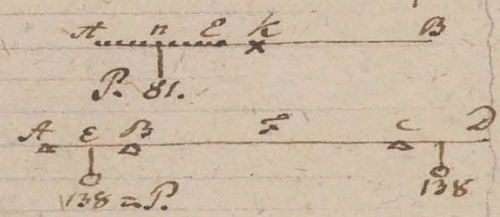 A n E K B
P. 81.
A E B F C D
138 = P. 138